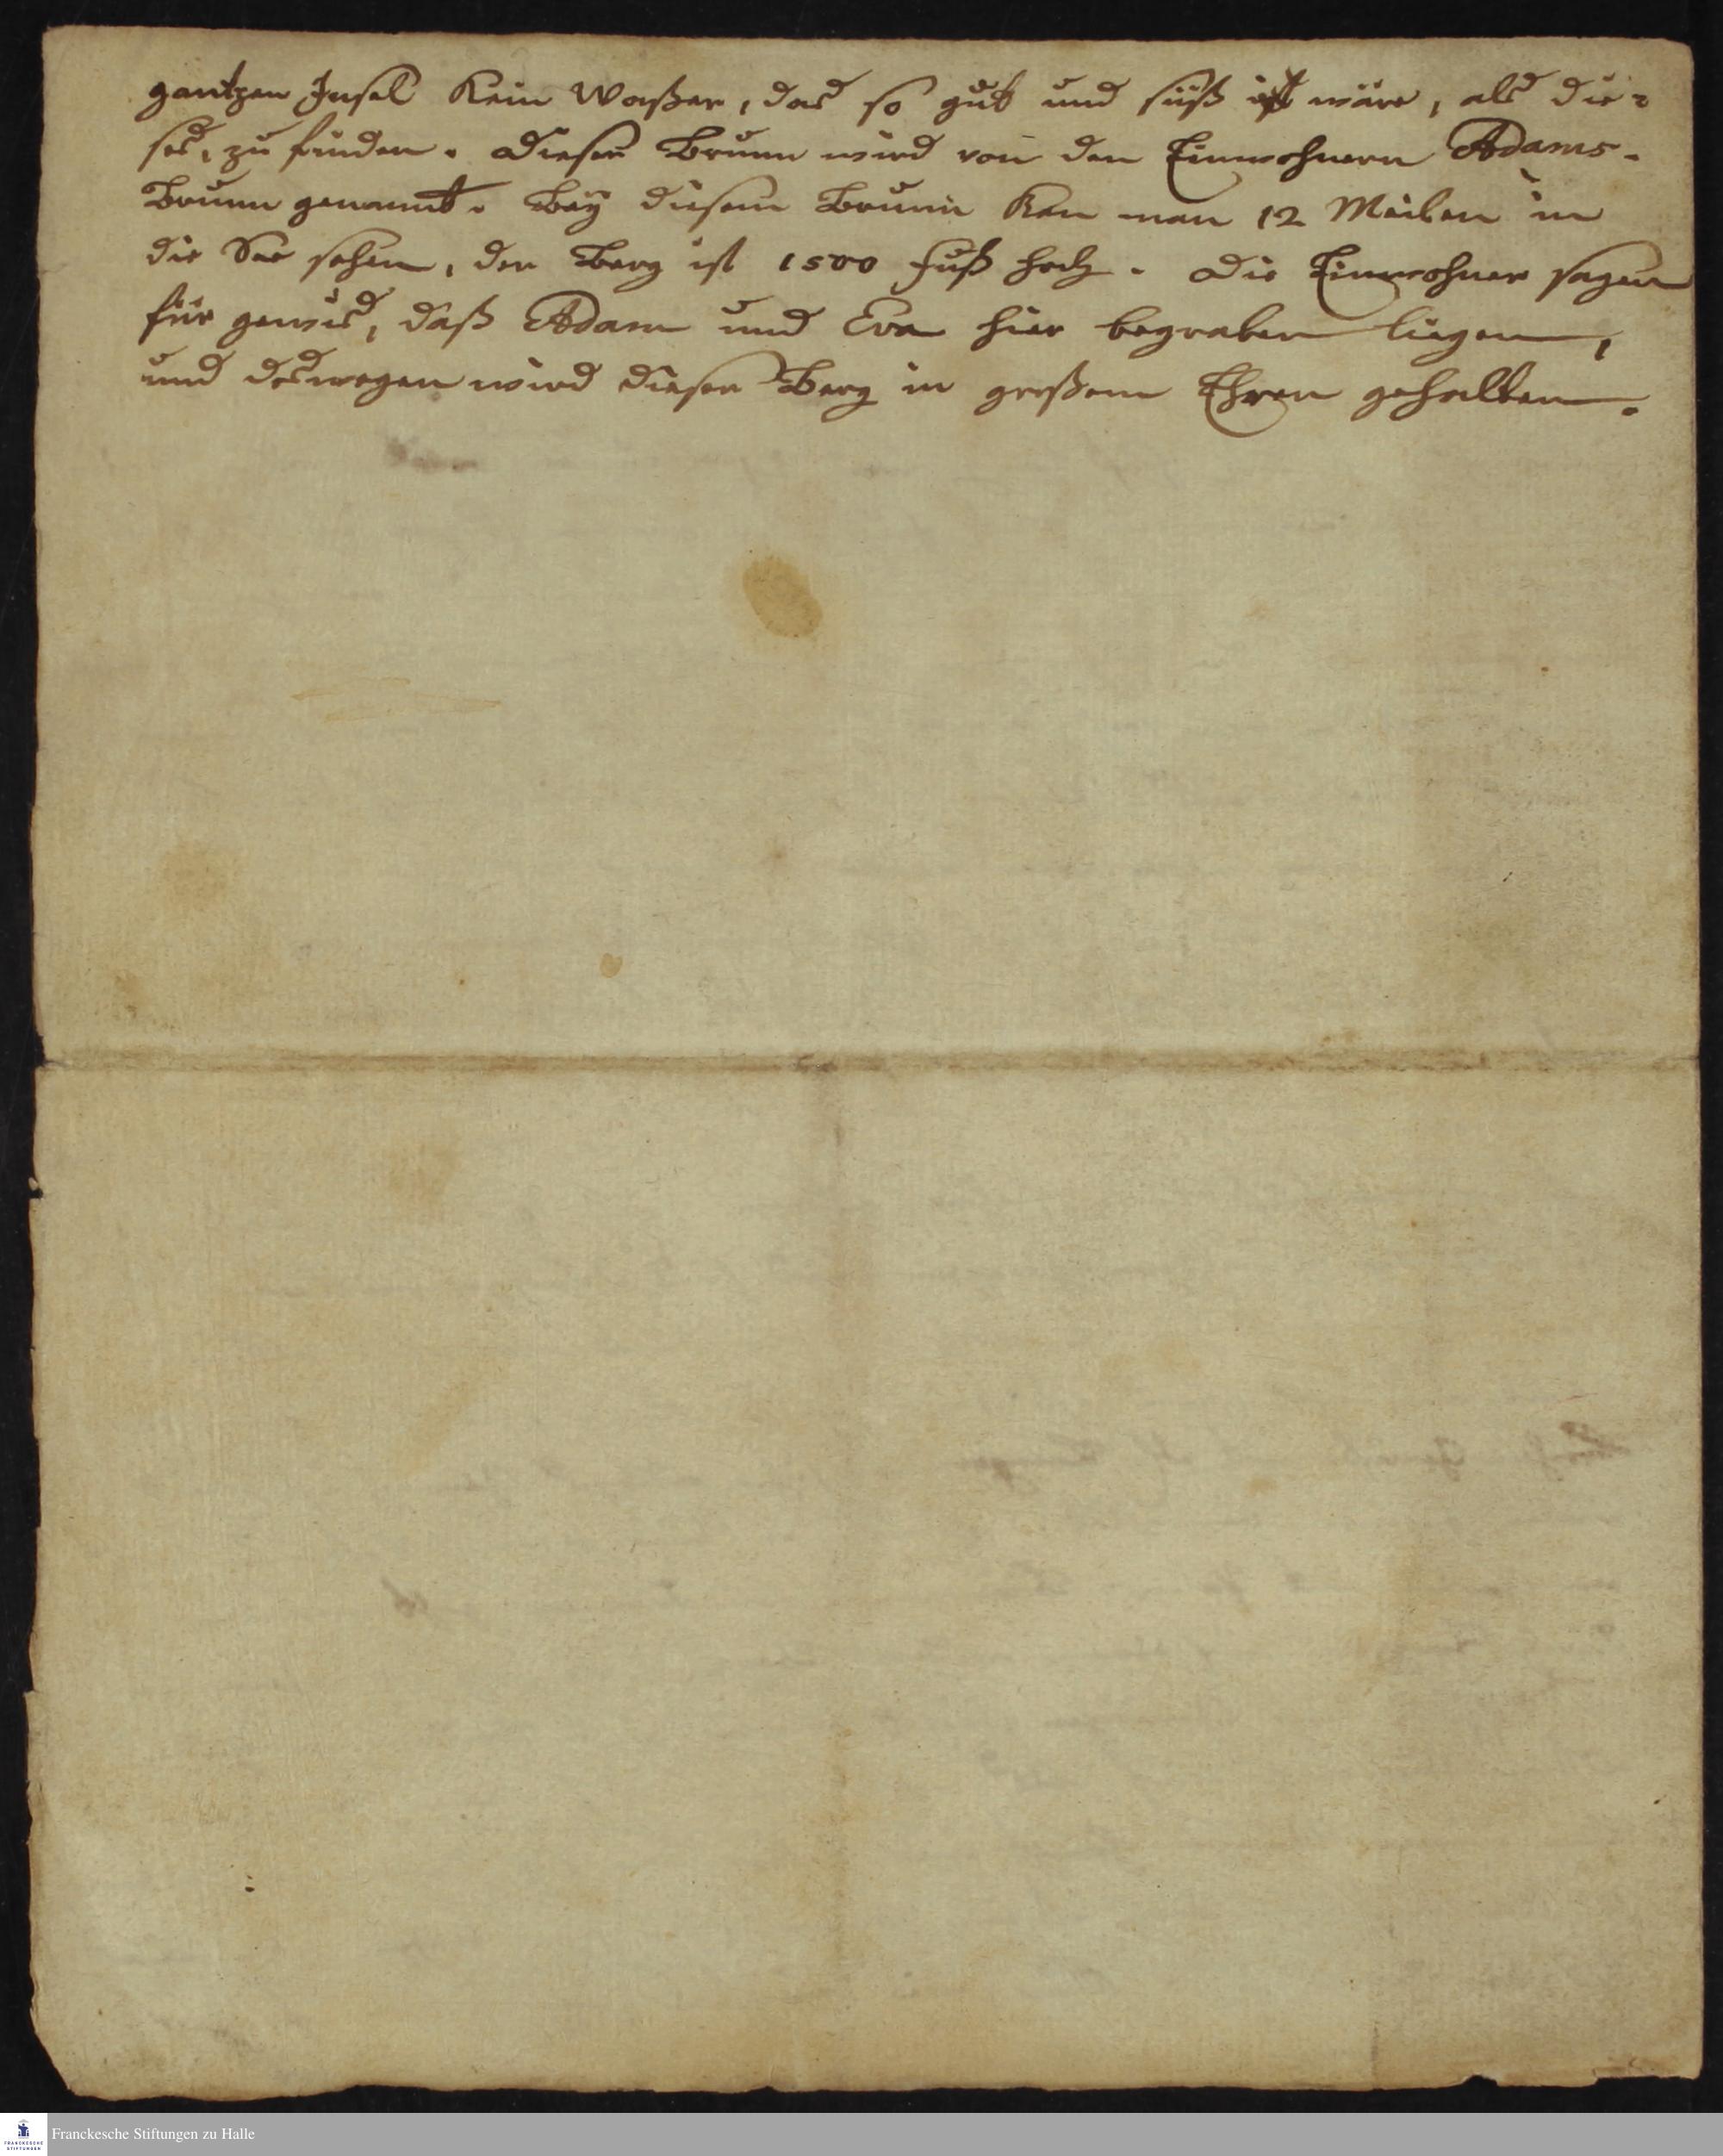 gantzen Insel kein Waßer, das so gut und süß ist wäre, als die-
ses, zu finden. Dieser Brunn wird von den Einwohnern Adams-
Brunn genannt. Bey diesem Brunn kan man 12 Meilen in
die See sehen, der Berg ist 1500 Fuß hoch. Die Einwohner sagen
für gewis, daß Adam und Eva hier begraben liegen,
und deswegen wird dieser Berg in großem Ehren gehalten.
FRANCKESCHE
STIFTUNGEN
Franckesche Stiftungen zu Halle